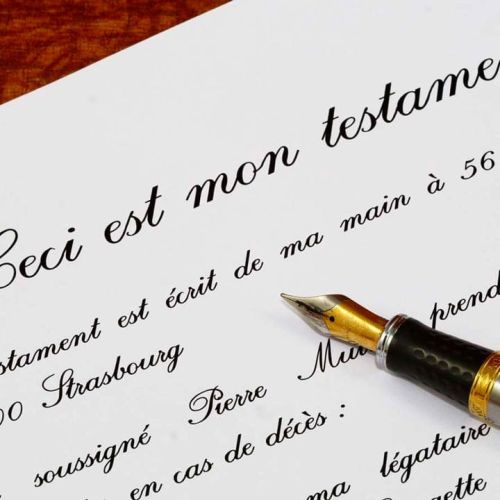 Ceci est mon testame
stament est écrit de ma main à 56
00 Strasbourg
soussigné Pierre Mu prend
en cas de décès :
ma légataire